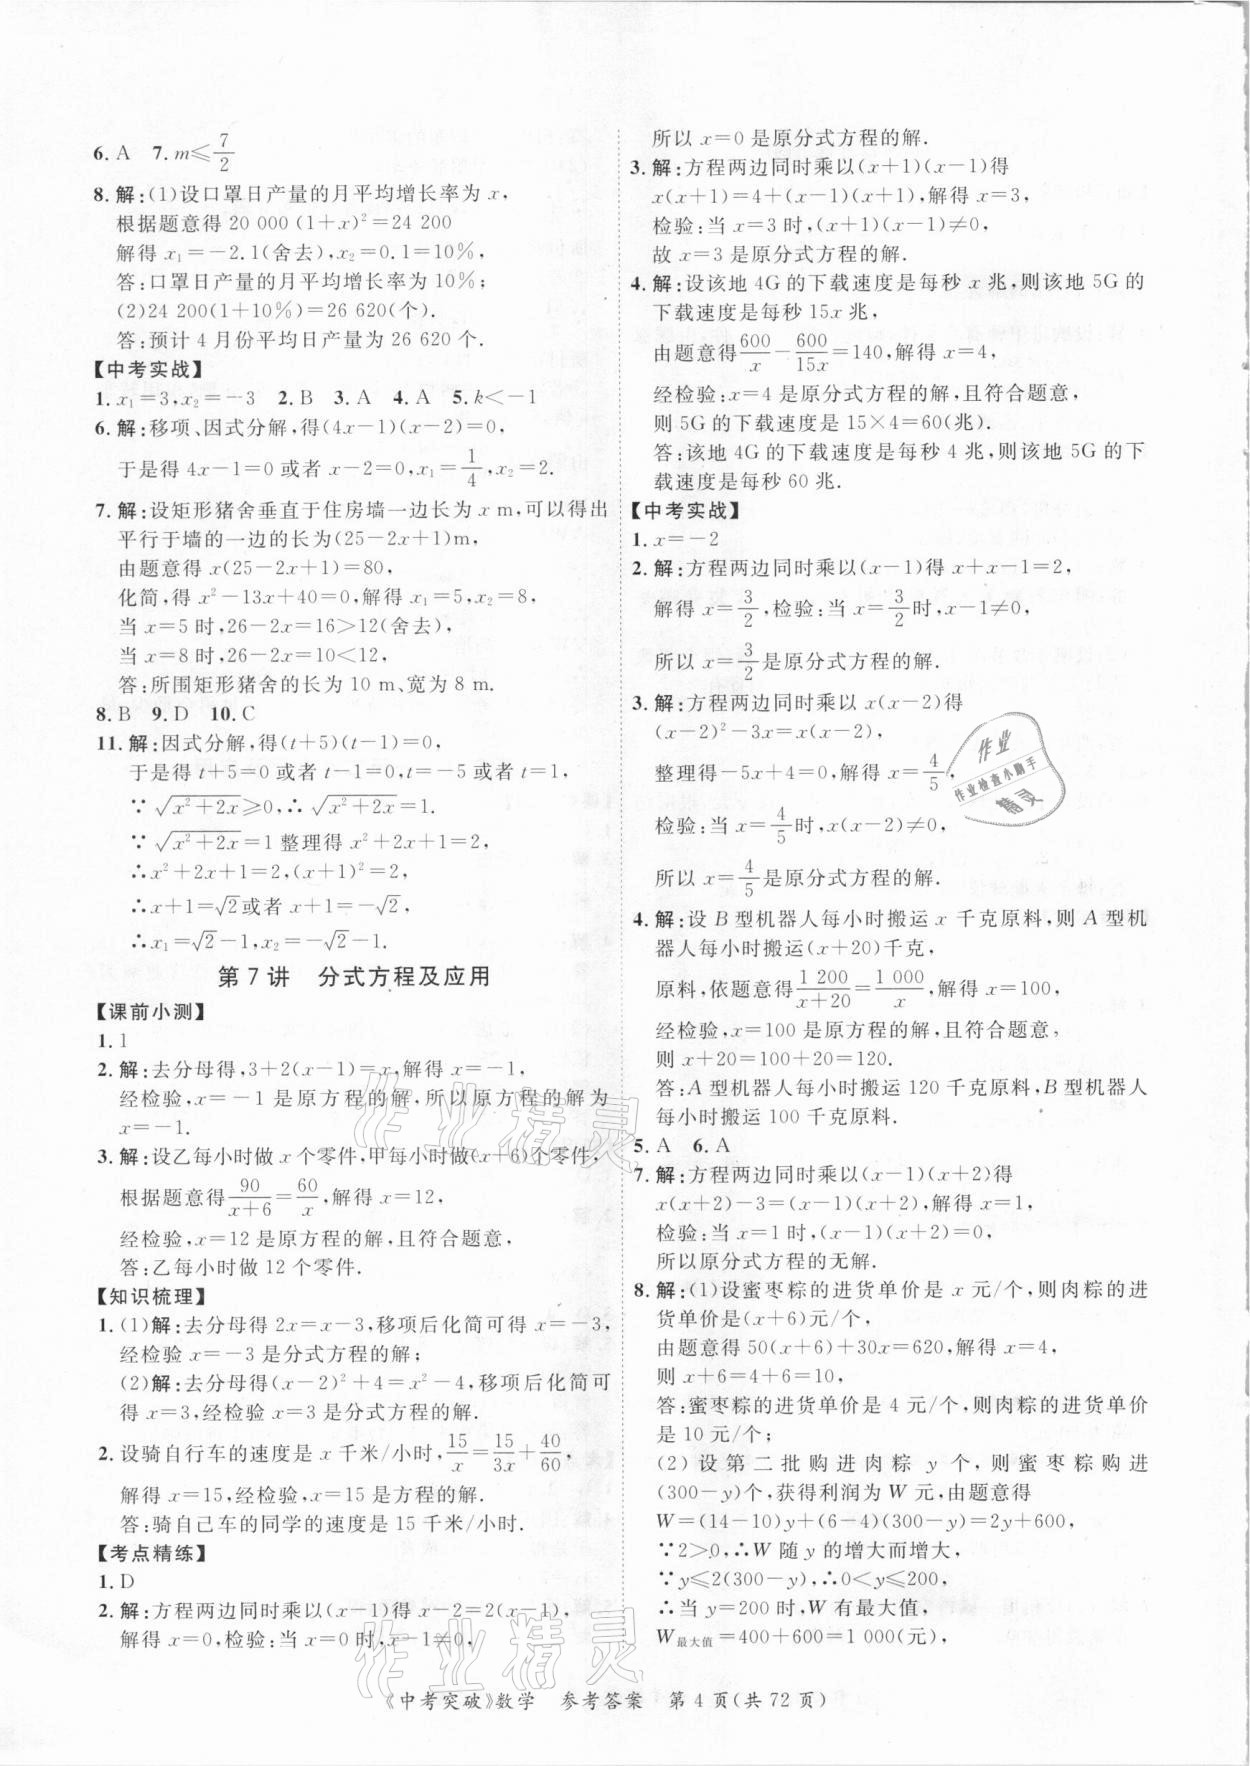 6. A  7. m≤7/2
8. 解:(1)设口罩日产量的月平均增长率为 x,
根据题意得 20 000(1+x)²=24 200
解得 x₁=-2.1(舍去),x₂=0.1=10%,
答:口罩日产量的月平均增长率为 10%;
(2)24 200(1+10%)=26 620(个).
答:预计 4 月份平均日产量为 26 620 个.
【中考实战】
1. x₁=3,x₂=-3  2. B  3. A  4. A  5. k<-1
6. 解:移项、因式分解,得(4x-1)(x-2)=0,
于是得 4x-1=0 或者 x-2=0,x₁=1/4,x₂=2.
7. 解:设矩形猪舍垂直于住房墙一边长为 x m,可以得出
平行于墙的一边的长为(25-2x+1)m,
由题意得 x(25-2x+1)=80,
化简,得 x²-13x+40=0,解得 x₁=5,x₂=8,
当 x=5 时,26-2x=16>12(舍去),
当 x=8 时,26-2x=10<12,
答:所围矩形猪舍的长为 10 m、宽为 8 m.
8. B  9. D  10. C
11. 解:因式分解,得(t+5)(t-1)=0,
于是得 t+5=0 或者 t-1=0,t=-5 或者 t=1,
∵√(x²+2x)≥0,∴√(x²+2x)=1.
∵√(x²+2x)=1 整理得 x²+2x=1,
∴x²+2x+1=2,(x+1)²=2,
∴x+1=√2或者 x+1=-√2,
∴x₁=√2-1,x₂=-√2-1.
第 7 讲  分式方程及应用
【课前小测】
1. 1
2. 解:去分母得,3+2(x-1)=x,解得 x=-1,
经检验,x=-1 是原方程的解,所以原方程的解为
x=-1.
3. 解:设乙每小时做 x 个零件,甲每小时做(x+6)个零件,
根据题意得90/(x+6)=60/x,解得 x=12,
经检验,x=12 是原方程的解,且符合题意,
答:乙每小时做 12 个零件.
【知识梳理】
1. (1)解:去分母得 2x=x-3,移项后化简可得 x=-3,
经检验 x=-3 是分式方程的解;
(2)解:去分母得(x-2)²+4=x²-4,移项后化简可
得 x=3,经检验 x=3 是分式方程的解.
2. 设骑自行车的速度是 x 千米/小时,15/x=15/3x+40/60,
解得 x=15,经检验,x=15 是方程的解.
答:骑自己车的同学的速度是 15 千米/小时.
【考点精练】
1. D
2. 解:方程两边同时乘以(x-1)得 x-2=2(x-1),
解得 x=0,检验:当 x=0时,x-1≠0,
所以 x=0 是原分式方程的解.
3. 解:方程两边同时乘以(x+1)(x-1)得
x(x+1)=4+(x-1)(x+1),解得 x=3,
检验:当 x=3 时,(x+1)(x-1)≠0,
故 x=3 是原分式方程的解.
4. 解:设该地 4G 的下载速度是每秒 x 兆,则该地 5G 的
下载速度是每秒 15x 兆,
由题意得600/x-600/15x=140,解得 x=4,
经检验:x=4 是原分式方程的解,且符合题意,
则 5G 的下载速度是 15×4=60(兆).
答:该地 4G 的下载速度是每秒 4 兆,则该地 5G 的下
载速度是每秒 60 兆.
【中考实战】
1. x=-2
2. 解:方程两边同时乘以(x-1)得 x+x-1=2,
解得 x=3/2,检验:当 x=3/2时,x-1≠0,
所以 x=3/2是原分式方程的解.
3. 解:方程两边同时乘以 x(x-2)得
(x-2)²-3x=x(x-2),
整理得-5x+4=0,解得 x=4/5,
检验:当 x=4/5时,x(x-2)≠0,
所以 x=4/5是原分式方程的解.
4. 解:设 B 型机器人每小时搬运 x 千克原料,则 A 型机
器人每小时搬运(x+20)千克,
原料,依题意得1 200/(x+20)=1 000/x,解得 x=100,
经检验,x=100 是原方程的解,且符合题意,
则 x+20=100+20=120.
答:A 型机器人每小时搬运 120 千克原料,B 型机器人
每小时搬运 100 千克原料.
5. A  6. A
7. 解:方程两边同时乘以(x-1)(x+2)得
x(x+2)-3=(x-1)(x+2),解得 x=1,
检验:当 x=1 时,(x-1)(x+2)=0
所以原分式方程的无解.
8. 解:(1)设蜜枣粽的进货单价是 x 元/个,则肉粽的进
货单价是(x+6)元/个,
由题意得 50(x+6)+30x=620,解得 x=4,
则 x+6=4+6=10,
答:蜜枣粽的进货单价是 4 元/个,则肉粽的进货单价
是 10 元/个;
(2)设第二批购进肉粽 y 个,则蜜枣粽购进
(300-y)个,获得利润为 W 元,由题意得
W=(14-10)y+(6-4)(300-y)=2y+600,
∵2>0,∴W 随 y 的增大而增大,
∵y≤2(300-y),∴0<y≤200,
∴当 y=200 时,W 有最大值,
W最大值=400+600=1 000(元),
作业
作业检查小助手
精灵
作业精灵
作业精灵
《中考突破》数学  参考答案  第 4 页(共 72 页)